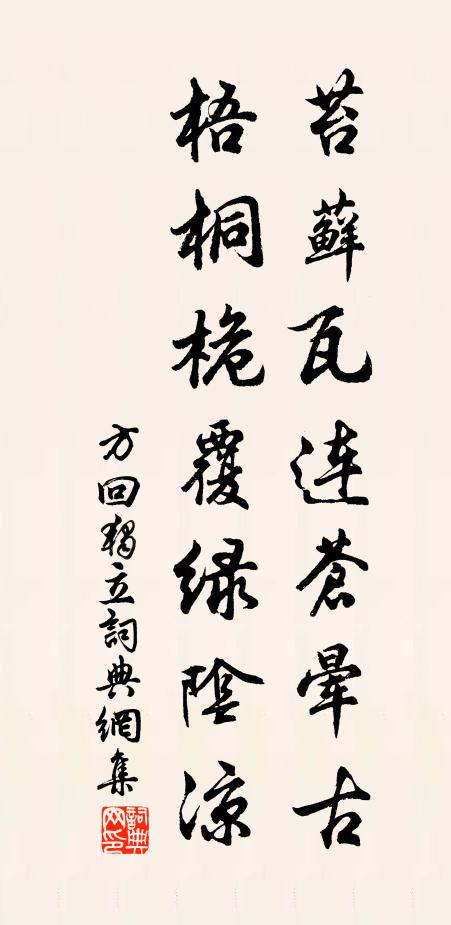 苔藓瓦连苍晕古
梧桐桅覆绿阴凉
方回独立词典网集
词典网印